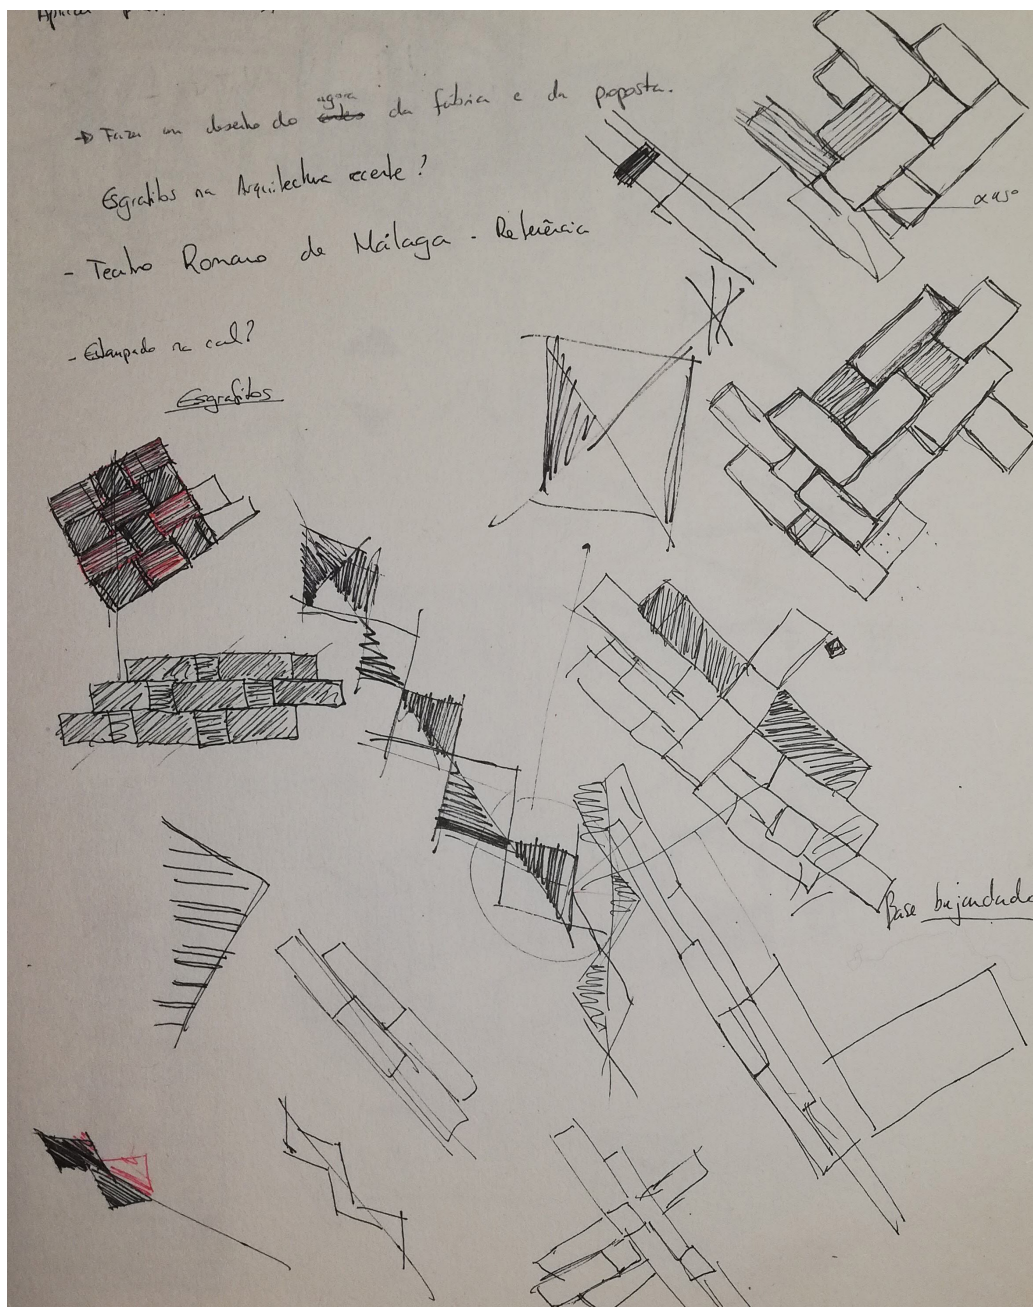 Fazer um desenho do agora da fábrica e da proposta.
Esgrafitos na Arquitectura recente?
- Teatro Romano de Málaga - Referência
- Estampado na cal?
Esgrafitos
α 45°
Base bujardada